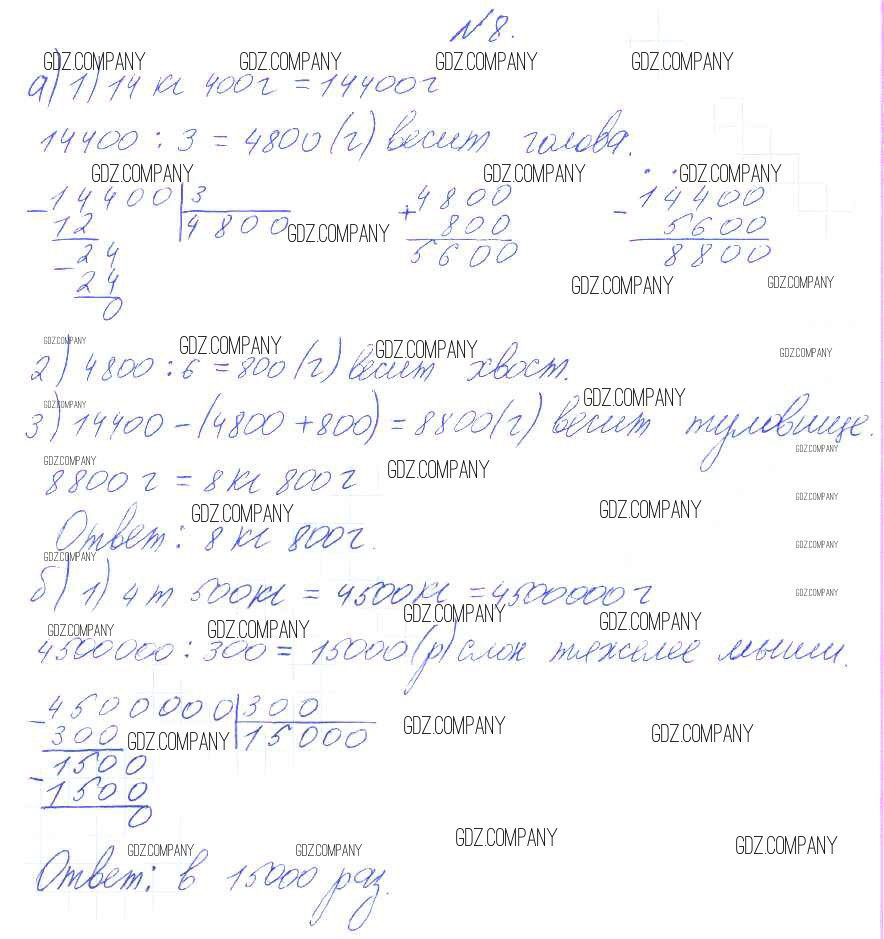 № 8.
GDZ.COMPANY GDZ.COMPANY GDZ.COMPANY GDZ.COMPANY
а) 1) 14 кг 400 г = 14400 г
14400 : 3 = 4800 (г) весит голова.
GDZ.COMPANY GDZ.COMPANY GDZ.COMPANY
14400 | 3 4800 14400
- 12 | 4800 + 800 - 5600
GDZ.COMPANY
- 24 5600 8800
24 GDZ.COMPANY GDZ.COMPANY
0
GDZ.COMPANY GDZ.COMPANY GDZ.COMPANY GDZ.COMPANY
2) 4800 : 6 = 800 (г) весит хвост.
GDZ.COMPANY GDZ.COMPANY
3) 14400 - (4800 + 800) = 8800 (г) весит туловище.
GDZ.COMPANY GDZ.COMPANY GDZ.COMPANY
8800 г = 8 кг 800 г
GDZ.COMPANY GDZ.COMPANY GDZ.COMPANY
Ответ: 8 кг 800 г.
GDZ.COMPANY GDZ.COMPANY
б) 1) 4 т 500 кг = 4500 кг = 4500000 г
GDZ.COMPANY GDZ.COMPANY
GDZ.COMPANY GDZ.COMPANY GDZ.COMPANY
4500000 : 300 = 15000 (р) слон тяжелее мыши.
4500000 | 300
- 300 | 15000
GDZ.COMPANY GDZ.COMPANY GDZ.COMPANY
- 1500
1500
0
GDZ.COMPANY GDZ.COMPANY GDZ.COMPANY GDZ.COMPANY
Ответ: в 15000 раз.